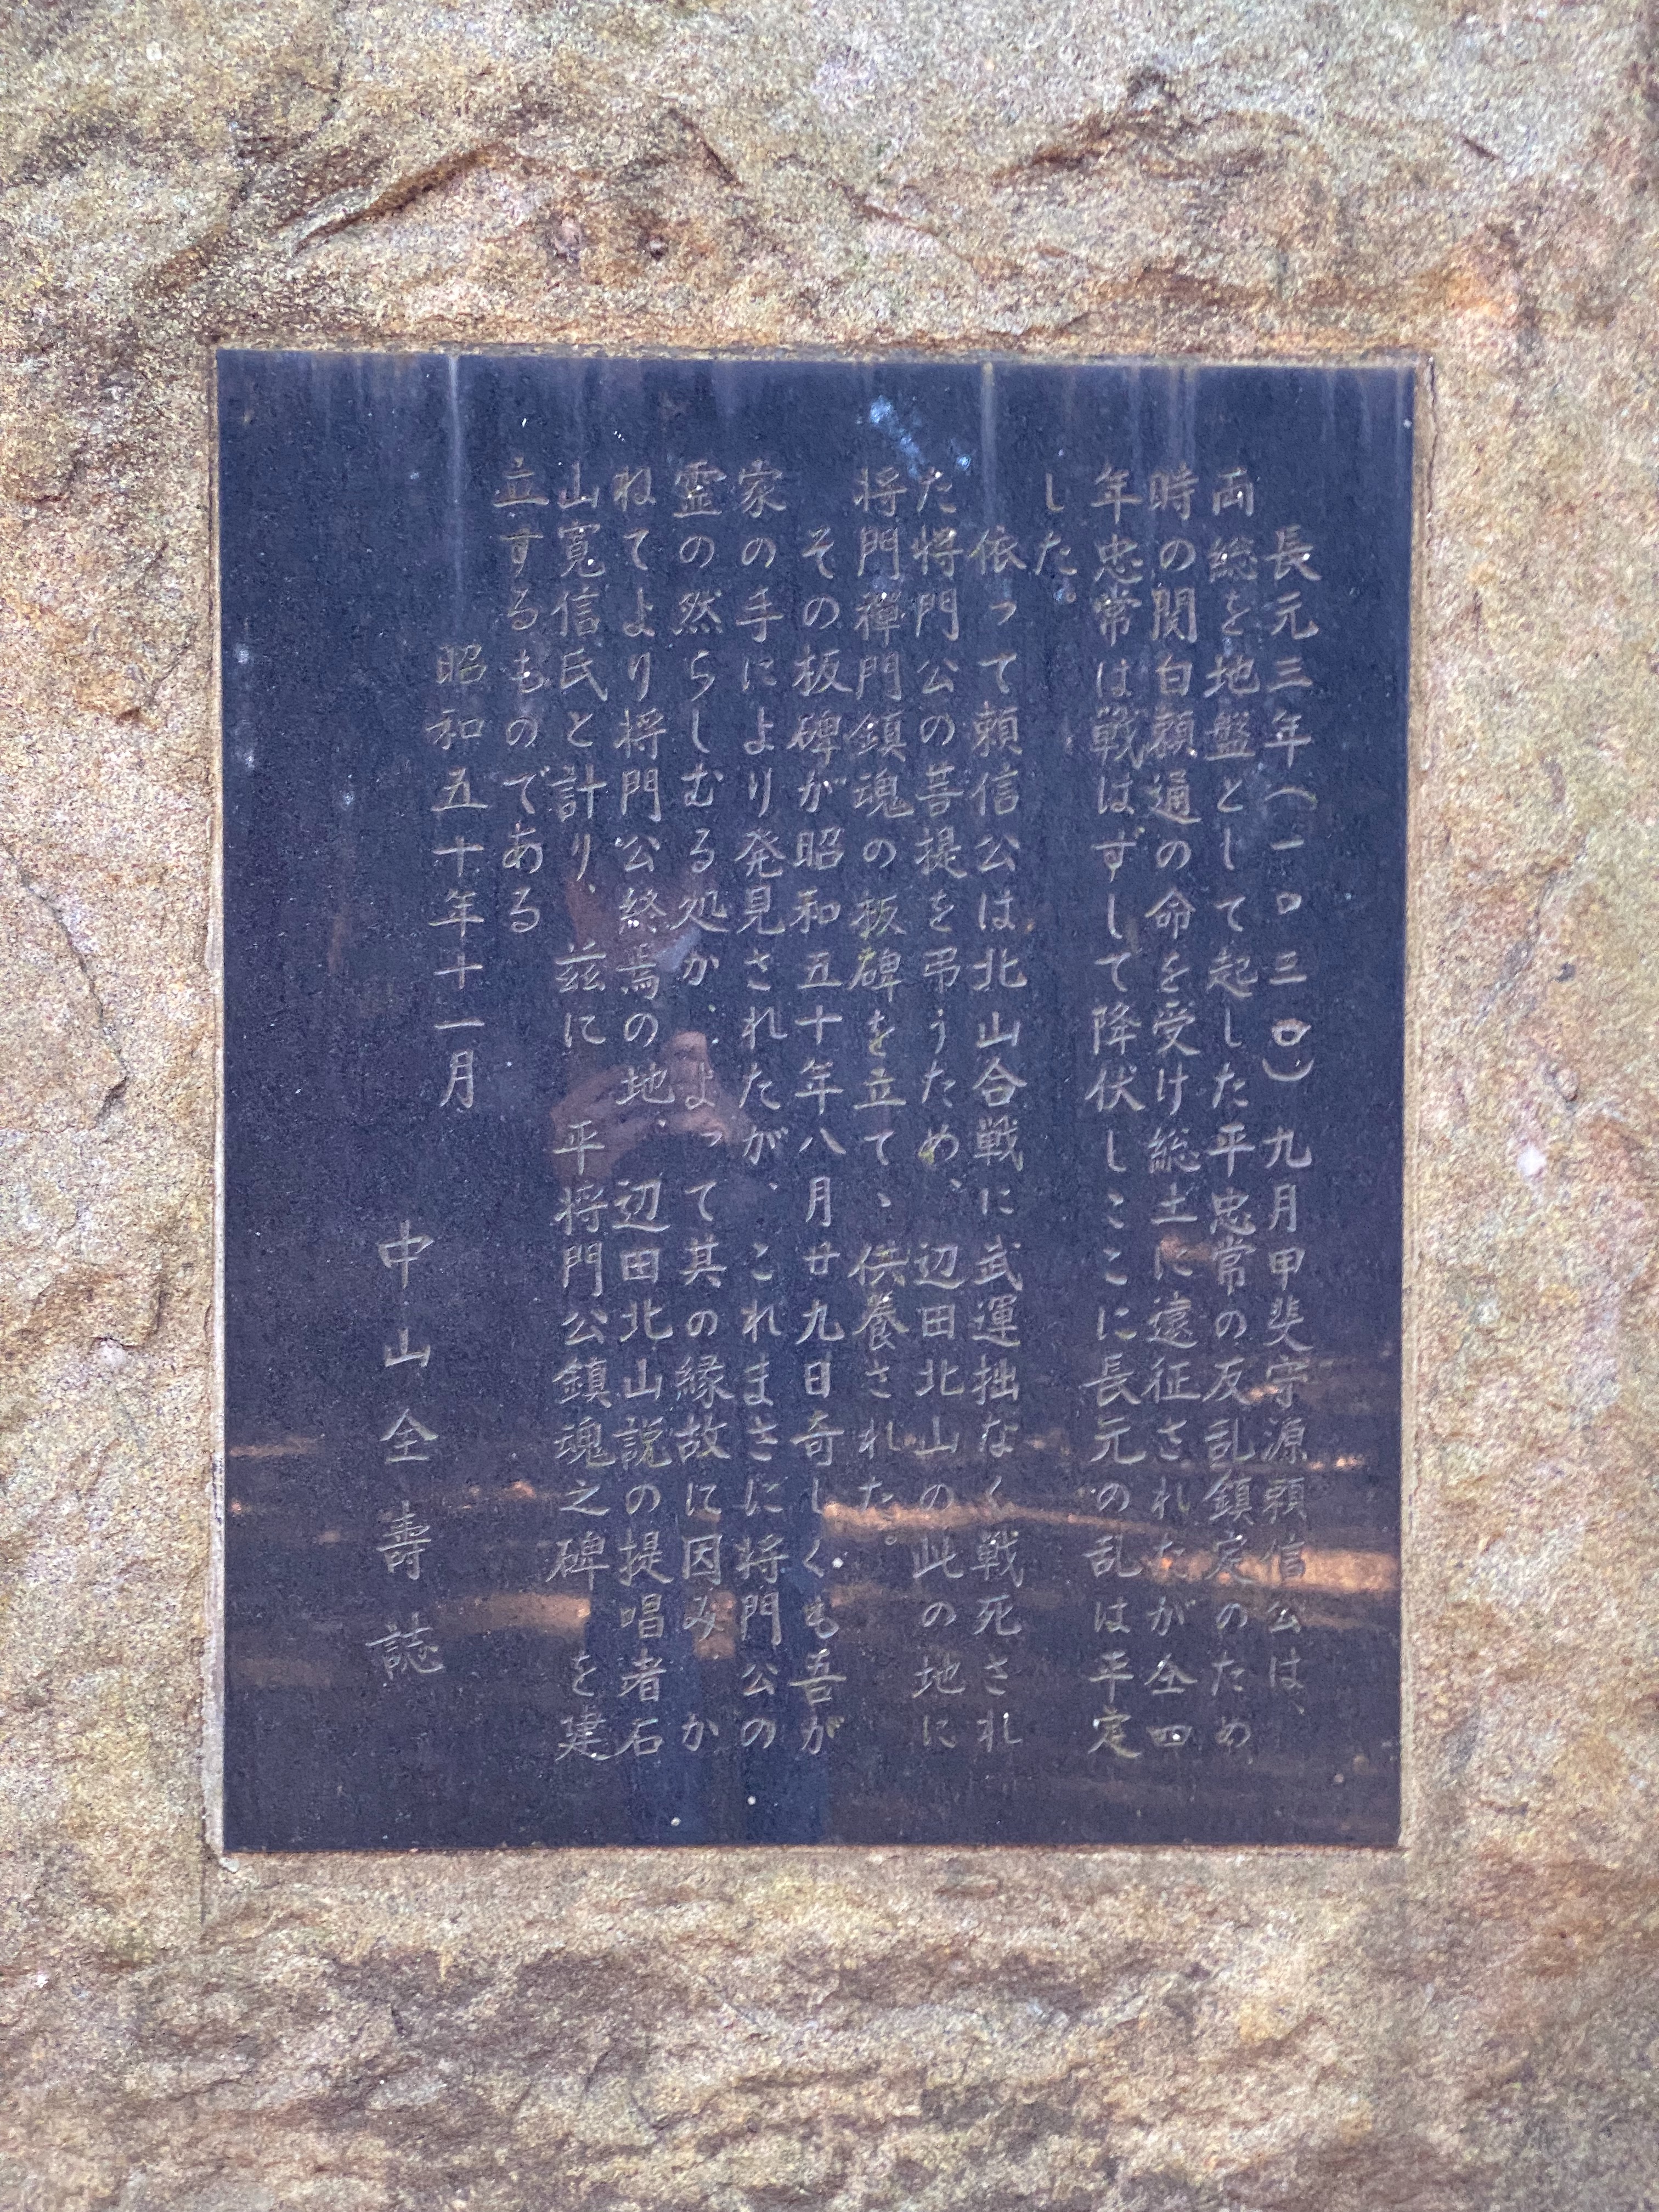 長元三年(一〇三〇)九月甲斐守源頼信公は、
両総を地盤として起した平忠常の反乱鎮定のため
時の関白頼通の命を受け総土に遠征されたが仝四
年忠常は戦はずして降伏しここに長元の乱は平定
した。
依って頼信公は北山合戦に武運拙なく戦死され
た将門公の菩提を弔うため、辺田北山の此の地に
将門禅門鎮魂の板碑を立て、供養された。
その板碑が昭和五十年八月廿九日奇しくも吾が
家の手により発見されたが、これまさに将門公の
霊の然らしむる処か、よって其の縁故に因みか
ねてより将門公終焉の地、辺田北山説の提唱者石
山寛信氏と計り、茲に 平将門公鎮魂之碑 を建
立するものである
昭和五十年十一月
中山全壽 誌